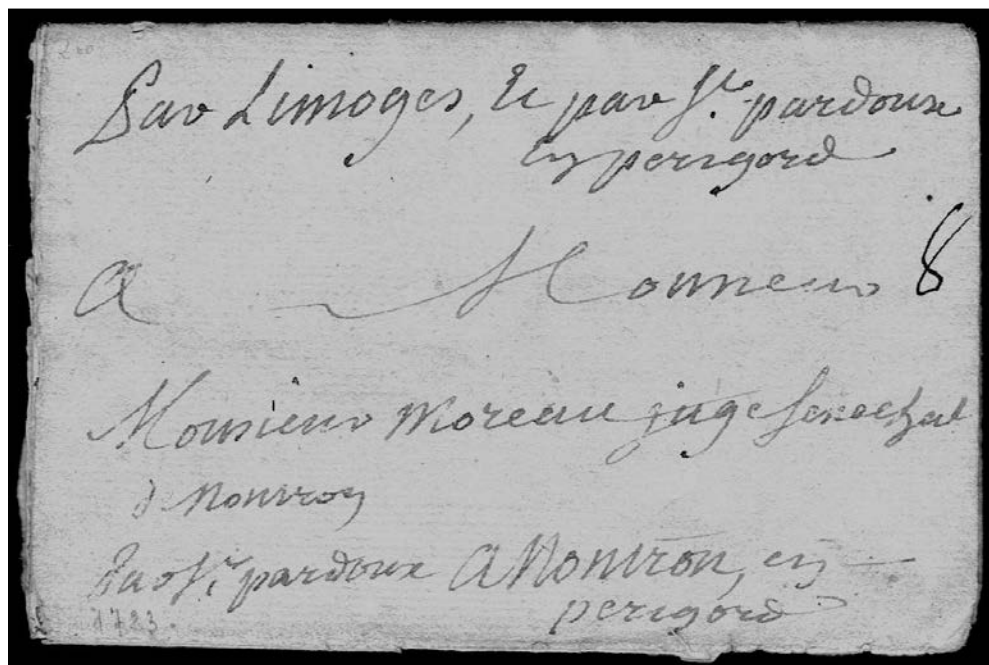 Par Limoges, Et par St. pardoux
En perigord
A Monsieur 8
Monsieur Moreau juge senechal
de Nontron
Par St. pardoux A Nontron, en
perigord
1723.